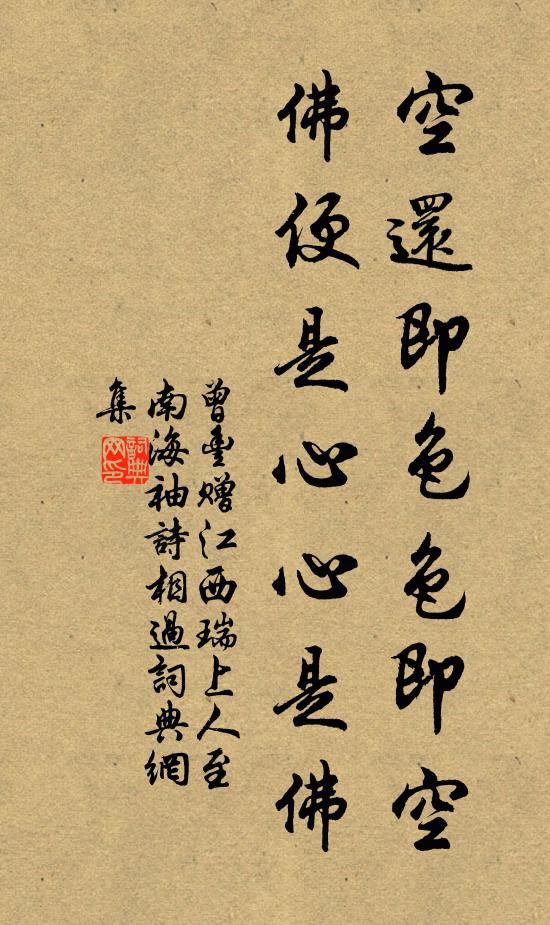 空還即色色即空
佛便是心心是佛
曾豐贈江西瑞上人至
南海袖詩相過詞典網
集
詞典
网印